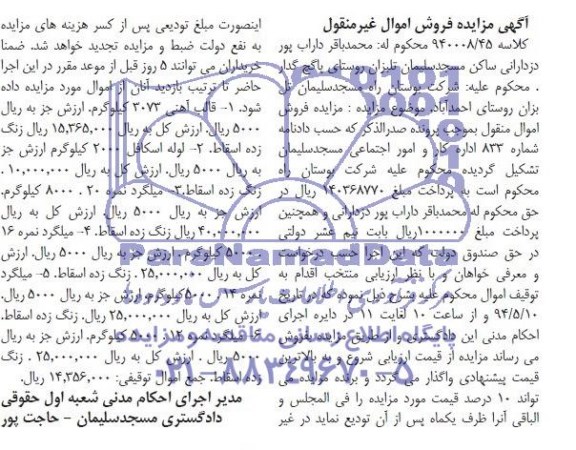 آگهی مزایده فروش اموال غیرمنقول
کلاسه ۹۴۰۰۰۸/۴۵ محکوم له: محمدباقر داراب پور
دزدارانی ساکن مسجدسلیمان تلبزان روستای باگچ گدار
. محکوم علیه: شرکت بوستان راه مسجدسلیمان تل
بزان روستای احمدآباد. موضوع مزایده : مزایده فروش
اموال منقول بموجب پرونده صدرالذکر که حسب دادنامه
شماره ۸۳۳ اداره کار و امور اجتماعی مسجدسلیمان
تشکیل گردیده محکوم علیه شرکت بوستان راه
محکوم است به پرداخت مبلغ ۱۴۰۳۶۸۷۷۰ ریال در
حق محکوم له محمدباقر داراب پور دزدارانی و همچنین
پرداخت مبلغ ۱۰۰۰۰۰۰ریال بابت نیم عشر دولتی
در حق صندوق دولت که این اجرا حسب درخواست
و معرفی خواهان و با نظر ارزیابی منتخب اقدام به
توقیف اموال محکوم علیه بشرح ذیل نموده که در تاریخ
۹۴/۵/۱۰ و از ساعت ۱۰ لغایت ۱۱ در دایره اجرای
احکام مدنی این دادگستری و از طریق مزایده بفروش
می رساند مزایده از قیمت ارزیابی شروع و به بالاترین
قیمت پیشنهادی واگذار می گردد و برنده مزایده می
تواند ۱۰ درصد قیمت مورد مزایده را فی المجلس و
الباقی آنرا ظرف یکماه پس از آن تودیع نماید در غیر
اینصورت مبلغ تودیعی پس از کسر هزینه های مزایده
به نفع دولت ضبط و مزایده تجدید خواهد شد. ضمنا
خریداران می توانند ۵ روز قبل از موعد مقرر در این اجرا
حاضر تا ترتیب بازدید آنان از اموال مورد مزایده داده
شود. ۱- قالب آهنی ۳۰۷۳ کیلوگرم. ارزش جز به ریال
۵۰۰۰ ریال. ارزش کل به ریال ۱۵,۳۶۵,۰۰۰ ریال زنگ
زده اسقاط. ۲- لوله اسکافل ۲۰۰۰ کیلوگرم ارزش جز
به ریال ۵۰۰۰ ریال. ارزش کل به ریال ۱۰,۰۰۰,۰۰۰ .
زنگ زده اسقاط.۳- میلگرد نمره ۲۰ . ۸۰۰۰ کیلوگرم.
ارزش جز به ریال ۵۰۰۰ ریال. ارزش کل به ریال
۴۰,۰۰۰,۰۰۰ ریال زنگ زده اسقاط. ۴- میلگرد نمره ۱۶
. ۵۰۰۰ کیلوگرم. ارزش جز به ریال ۵۰۰۰ ریال. ارزش
کل به ریال ۲۵,۰۰۰,۰۰۰ . زنگ زده اسقاط. ۵- میلگرد
نمره ۱۴ . ۵۰۰۰کیلوگرم.ارزش جز به ریال ۵۰۰۰ ریال.
ارزش کل به ریال ۲۵,۰۰۰,۰۰۰ ریال. زنگ زده اسقاط.
۶- میلگرد نمره ۱۲ . ۵۰۰۰ کیلوگرم. ارزش جز به ریال
۵۰۰۰ ریال . ارزش کل به ریال ۲۵,۰۰۰,۰۰۰ . زنگ
زده اسقاط. جمع اموال توقیفی: ۱۴,۳۵۶,۰۰۰ ریال.
مدیر اجرای احکام مدنی شعبه اول حقوقی
دادگستری مسجدسلیمان - حاجت پور
ParsNamadData
پایگاه اطلاع رسانی مناقصه و مزایده
۰۲۱-۸۸۳۴۹۶۷۰-۵